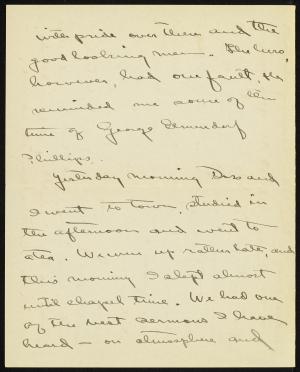 with pride over them and the
good looking men. The hero,
however, had one fault. He
reminded me some of the
time of George Elmendorf
Phillips.
Yesterday morning Dos and
I went to town, studied in
the afternoon and went to
tea. We were up rather late, and
this morning I slept almost
until chapel time. We had one
of the best sermons I have
heard — on atmosphere and